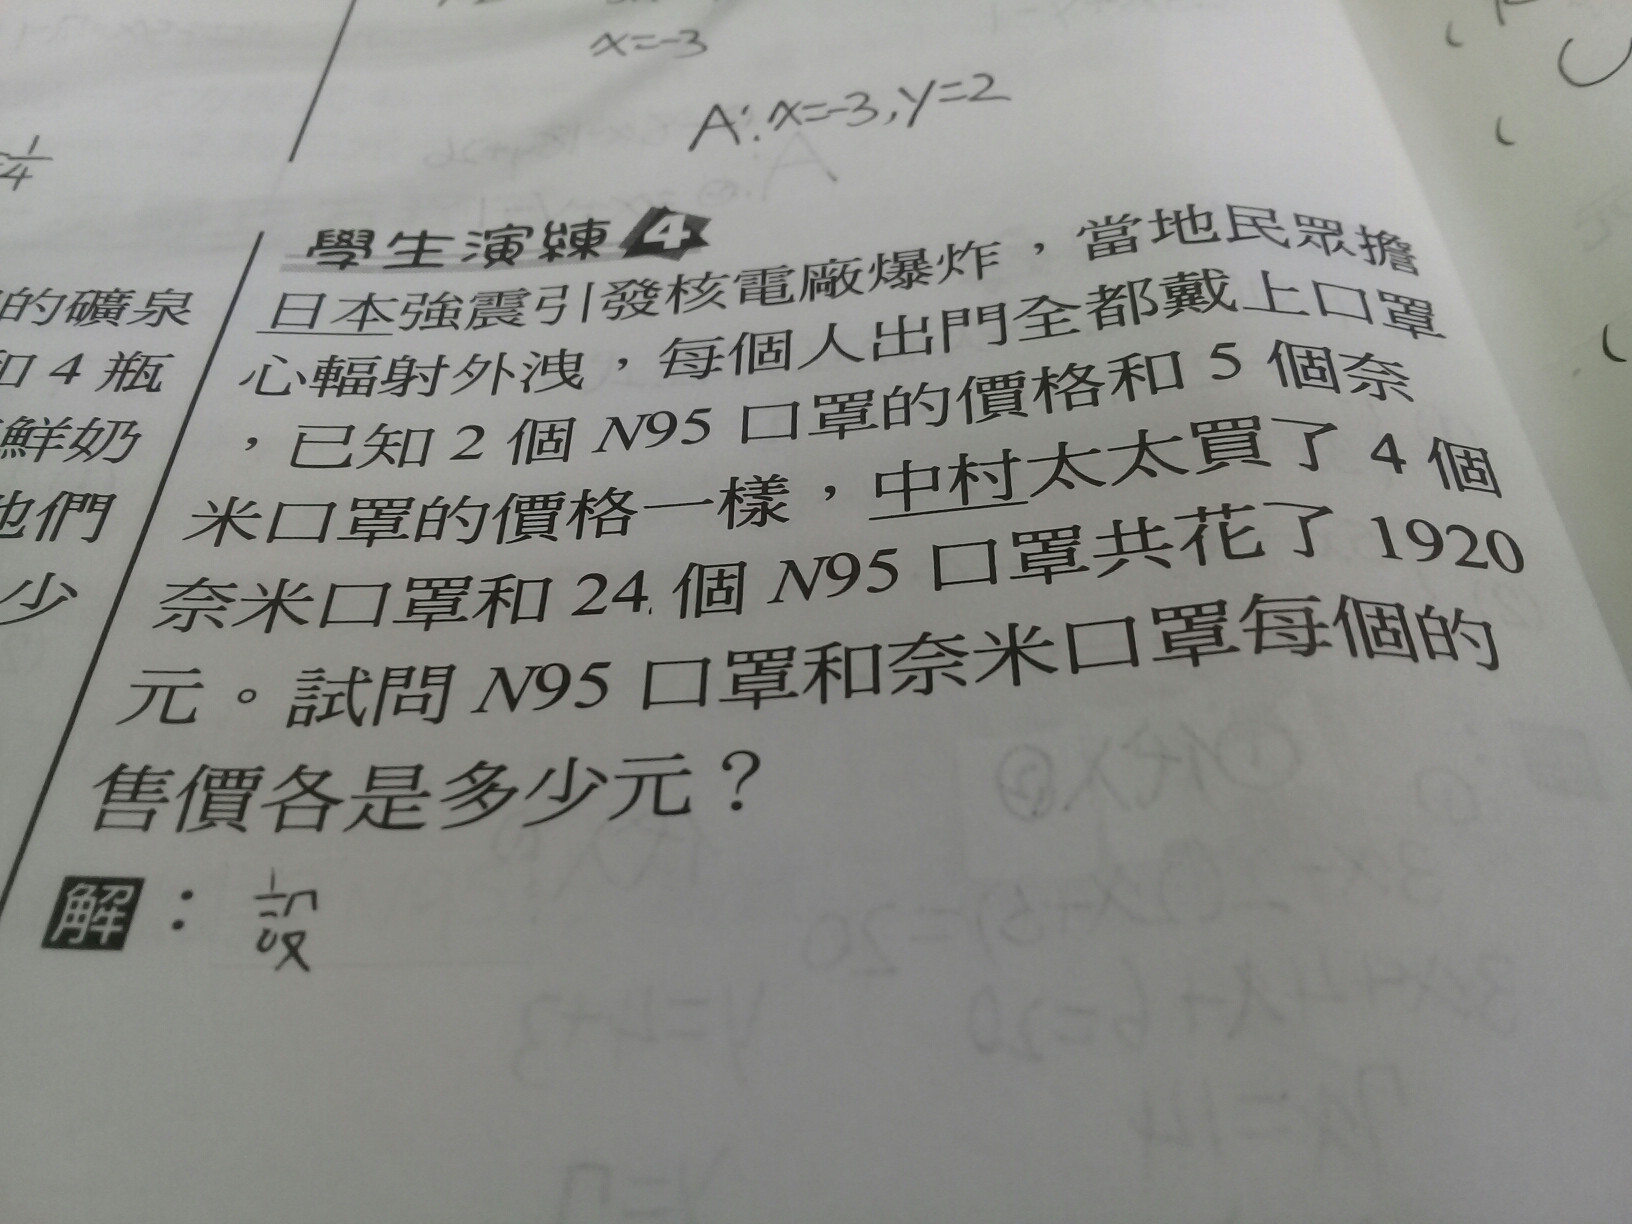 x=-3
A:x=-3,y=2
1/4
學生演練4
日本強震引發核電廠爆炸，當地民眾擔
心輻射外洩，每個人出門全都戴上口罩
，已知2個N95口罩的價格和5個奈
米口罩的價格一樣，中村太太買了4個
奈米口罩和24個N95口罩共花了1920
元。試問N95口罩和奈米口罩每個的
售價各是多少元？
解：設
的礦泉
4瓶
鮮奶
他們
少